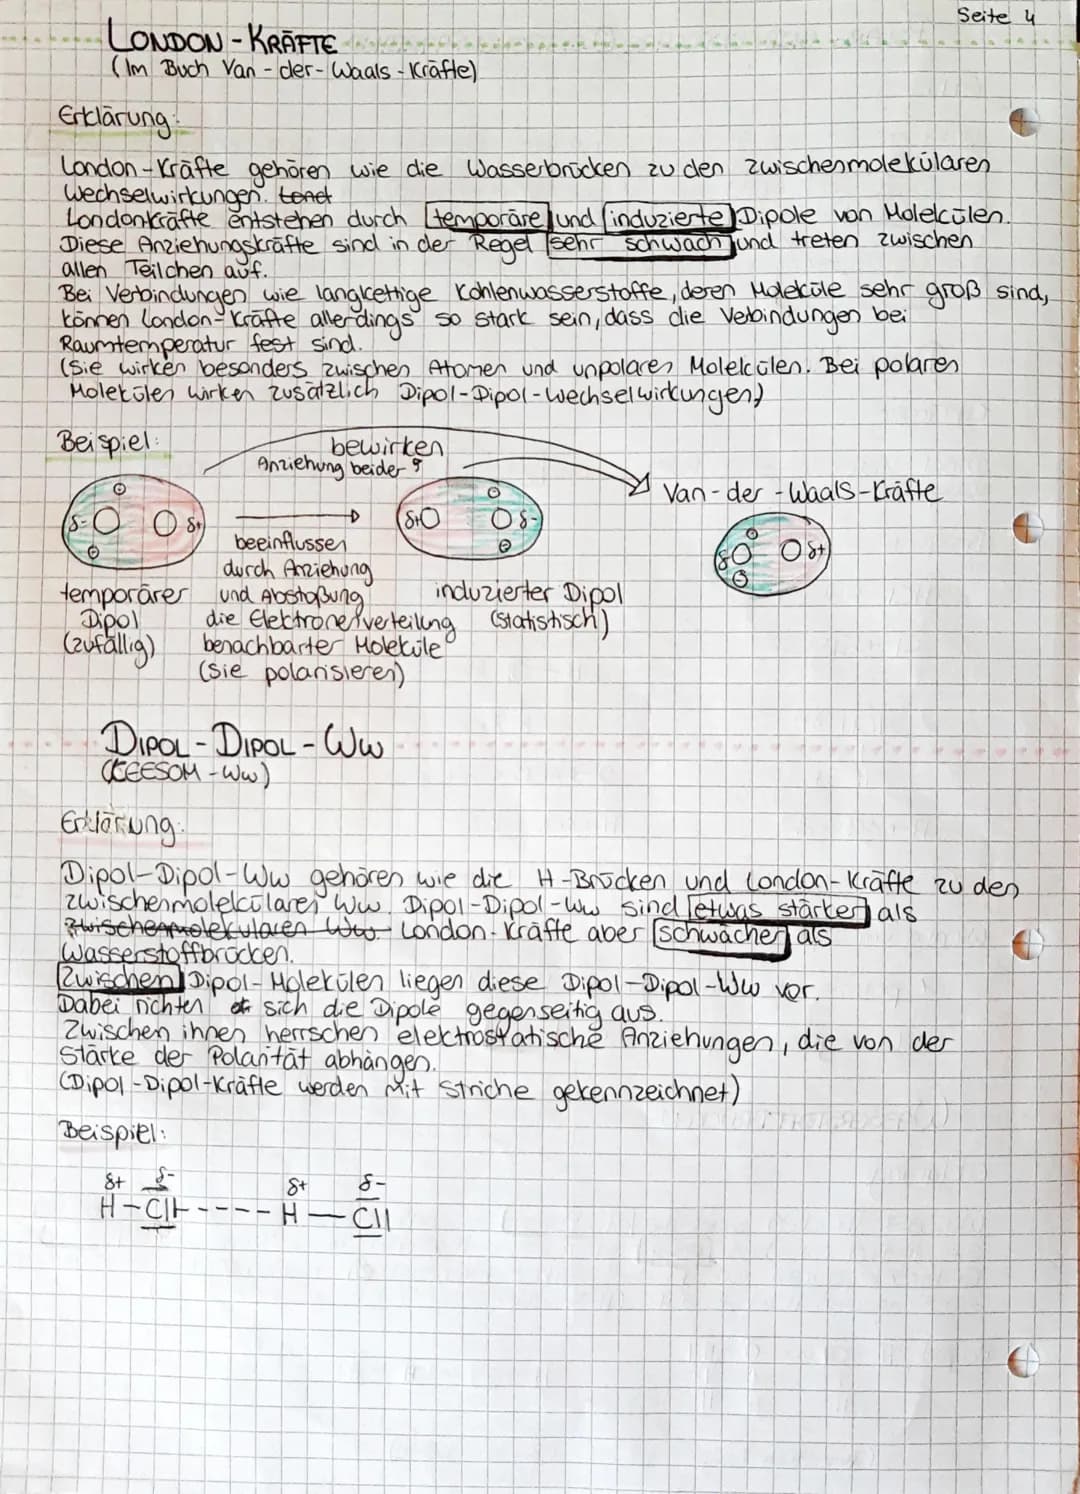 Seite 4
LONDON-KRÄFTE
(Im Buch Van-der-Waals-Kräfte)
Erklärung:
London-Kräfte gehören wie die Wasserbrücken zu den zwischenmolekularen
Wechselwirkungen.
Londonkräfte entstehen durch temporäre und induzierte Dipole von Molekülen.
Diese Anziehungskräfte sind in der Regel sehr schwach und treten zwischen
allen Teilchen auf.
Bei Verbindungen wie langkettige Kohlenwasserstoffe, deren Moleküle sehr groß sind,
können London-Kräfte allerdings so stark sein, dass die Vebindungen bei
Raumtemperatur fest sind.
(Sie wirken besonders zwischen Atomen und unpolaren Molekülen. Bei polaren
Molekülen wirken zusätzlich Dipol-Dipol-Wechselwirkungen)
Beispiel:
bewirken
Anziehung beider
Van-der-Waals-Kräfte
δ- δ+
δ+ δ-
δ- δ+
beeinflussen
durch Anziehung
und Abstoßung
die Elektronenverteilung
benachbarter Moleküle
(sie polarisieren)
temporärer
Dipol
(zufällig)
induzierter Dipol
(statistisch)
DIPOL-DIPOL-WW
(KEESOM-WW)
Erklärung:
Dipol-Dipol-Ww gehören wie die H-Brücken und London-Kräfte zu den
zwischenmolekularen Ww. Dipol-Dipol-Ww sind etwas stärker als
zwischenmolekularen Ww. London-Kräfte aber schwächer als
Wasserstoffbrücken.
Zwischen Dipol-Molekülen liegen diese Dipol-Dipol-Ww vor.
Dabei richten sich die Dipole gegenseitig aus.
Zwischen ihnen herrschen elektrostatische Anziehungen, die von der
Stärke der Polarität abhängen.
(Dipol-Dipol-Kräfte werden mit Striche gekennzeichnet)
Beispiel:
δ+ δ- δ+ δ-
H-Cl|-----H-Cl|